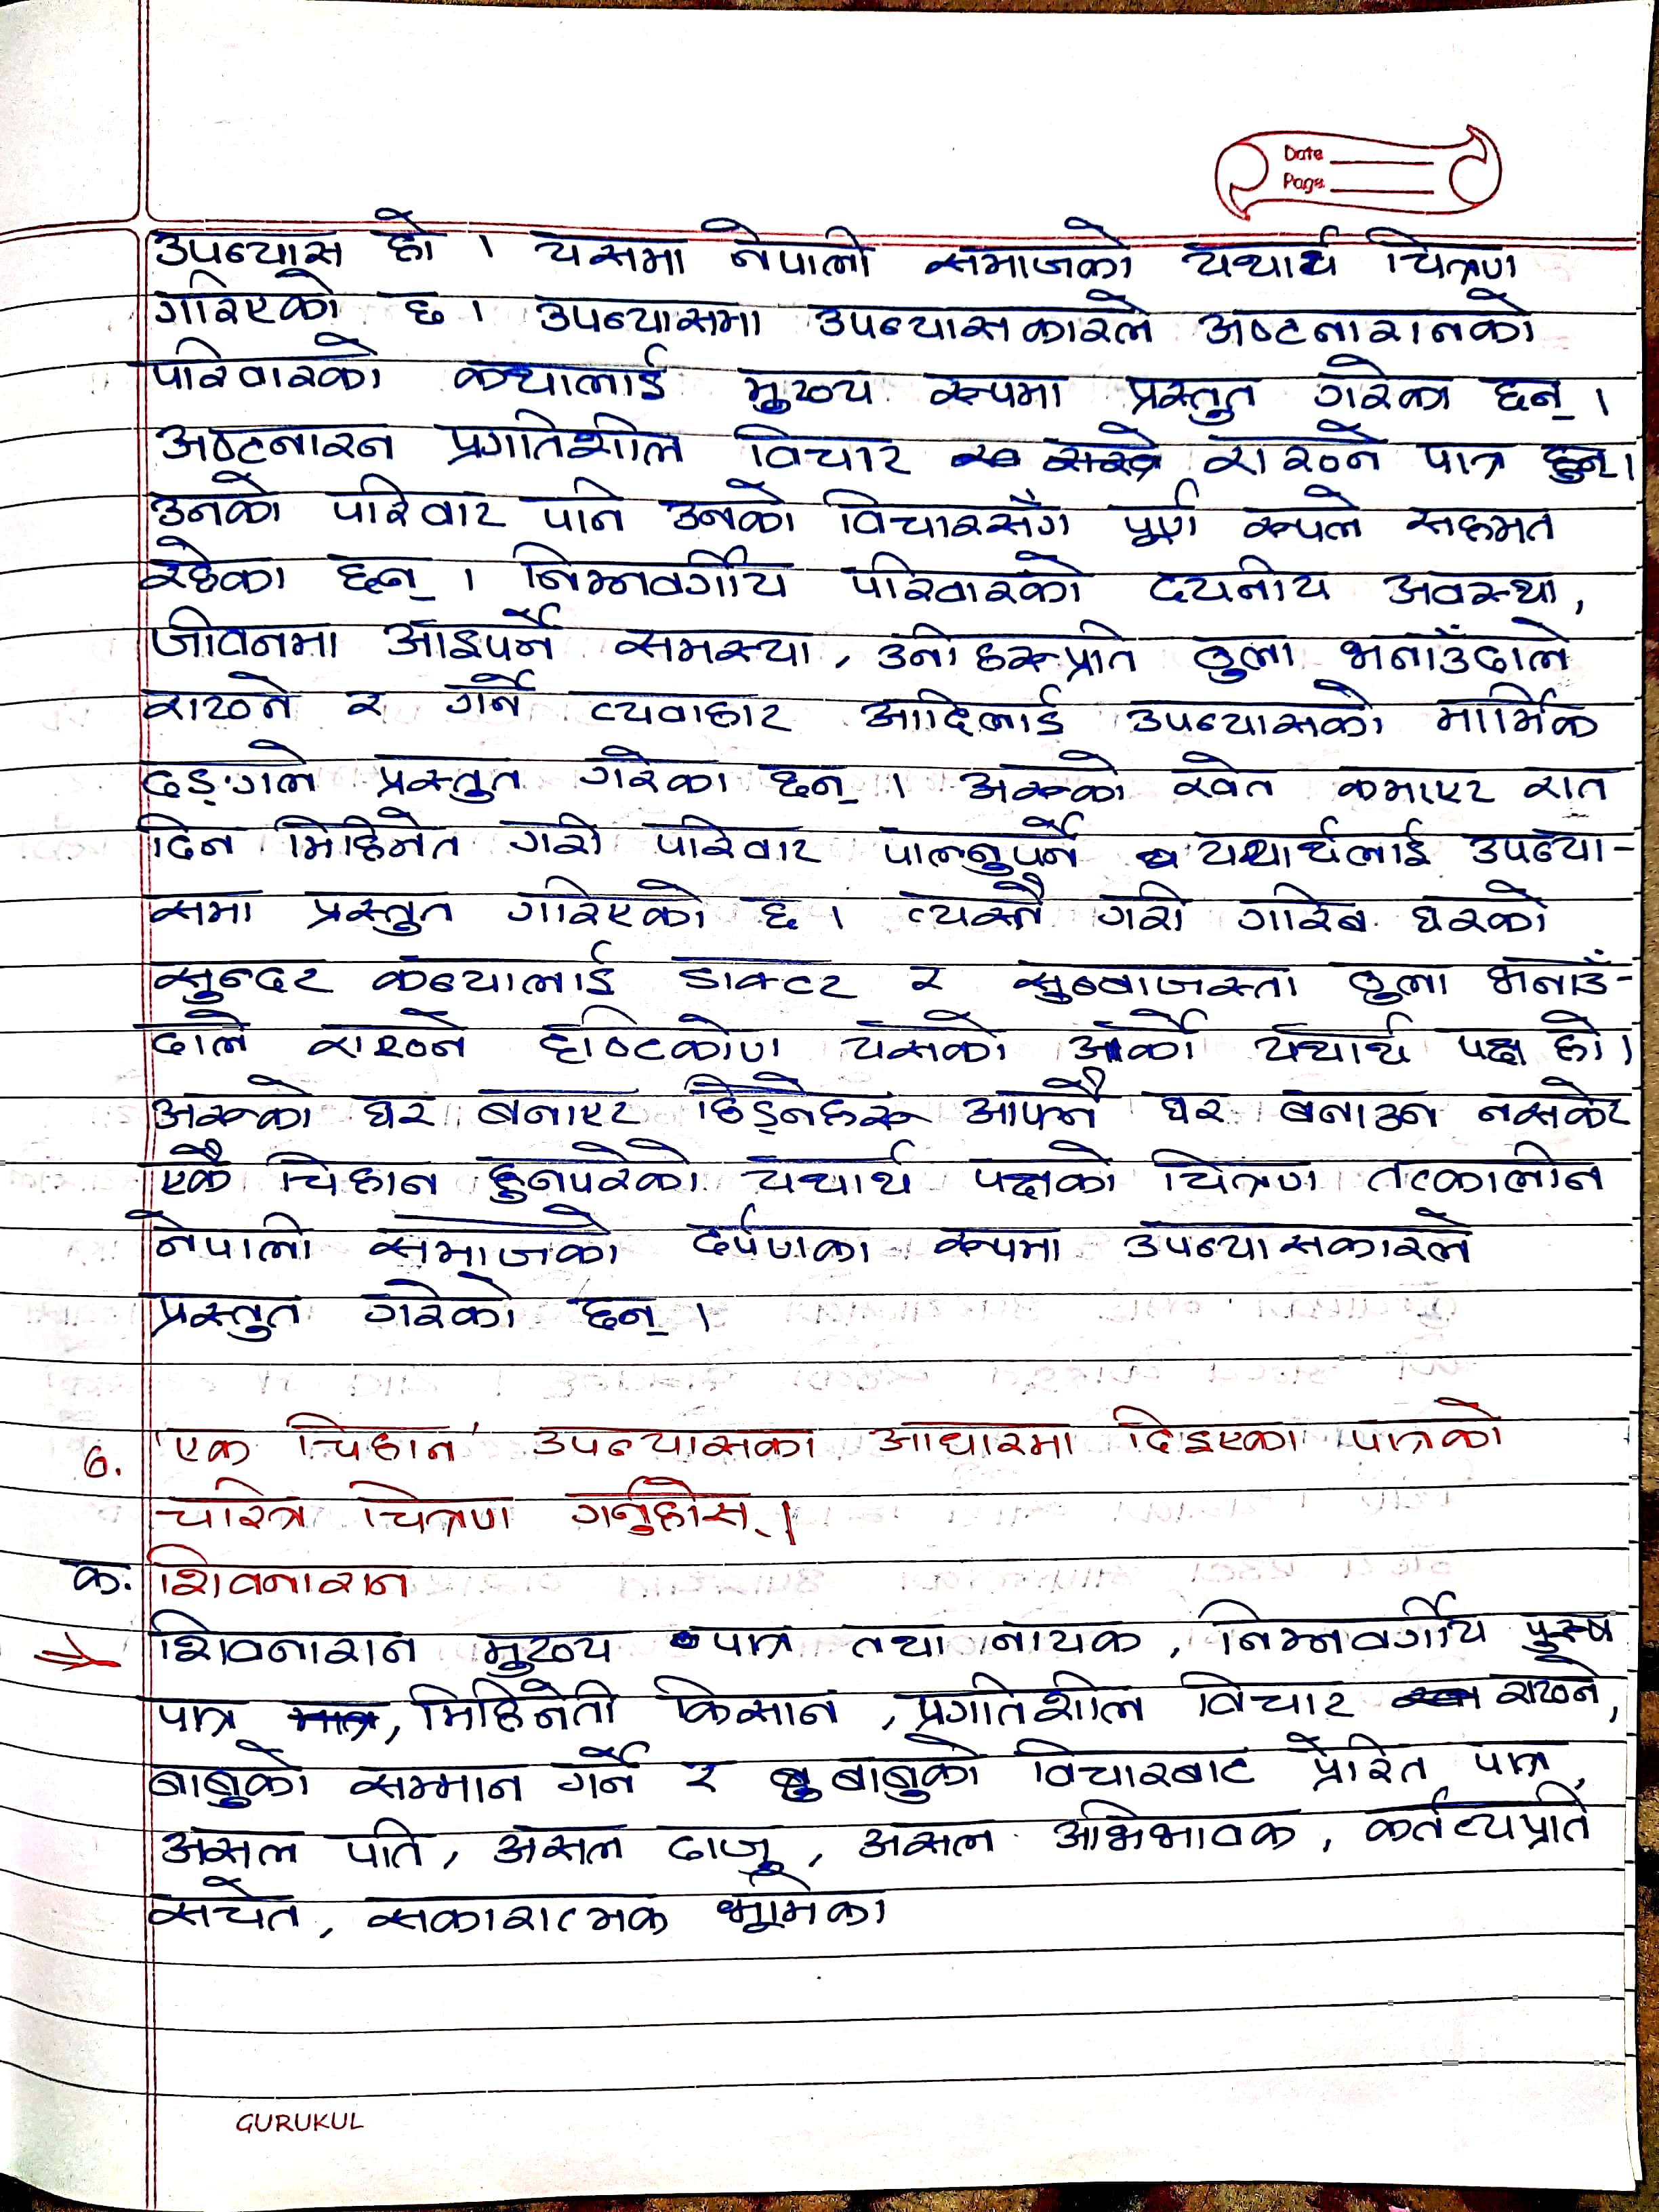 Date
Page
उपन्यास हो । यसमा नेपाली समाजको यथार्थ चित्रण
गरिएको छ । उपन्यासमा उपन्यासकारले अष्टनारानको
परिवारको कथालाई मुख्य रूपमा प्रस्तुत गरेका छन् ।
अष्टनारन प्रगतिशील विचार राख्ने पात्र हुन् ।
उनको परिवार पनि उनको विचारसँग पूर्ण रूपले सहमत
रहेका छन् । निम्नवर्गीय परिवारको दयनीय अवस्था,
जीवनमा आँइपर्ने समस्या, उनीहरूप्रति ठुला भनाउँदाले
राख्ने र गर्ने व्यवाहार आदिलाई उपन्यासको मार्मिक
ढङ्गले प्रस्तुत गरेका छन् । अरूको खेत कमाएर रात
दिन मिहिनेत गरी परिवार पाल्नुपर्ने यथार्थलाई उपन्या-
समा प्रस्तुत गरिएको छ । त्यस्तै गरी गरिब घरको
सुन्दर कन्यालाई डाक्टर र सुब्बाजस्ता ठुला भनाउँ-
दाले राख्ने दृष्टिकोण यसको अर्को यथार्थ पक्ष हो ।
अरूको घर बनाएर हिड्नेहरू आफ्नै घर बनाउन नसकेर
एकै चिहान हुनपरेको यथार्थ पक्षको चित्रण तत्कालीन
नेपाली समाजको दर्पणका रूपमा उपन्यासकारले
प्रस्तुत गरेको छन् ।
6. 'एक चिहान' उपन्यासका आधारमा दिइएका पात्रको
चरित्र चित्रण गर्नुहोस् ।
क. शिवनारान
⇒ शिवनारान मुख्य पात्र तथा नायक, निम्नवर्गीय पुरूष
पात्र, मिहिनेती किसान, प्रगतिशील विचार राख्ने,
बाबुको सम्मान गर्ने र बाबुको विचारबाट प्रेरित पात्र,
असल पति, असल दाजू, असल अभिभावक, कर्तव्यप्रति
सचेत, सकारात्मक भूमिका
GURUKUL